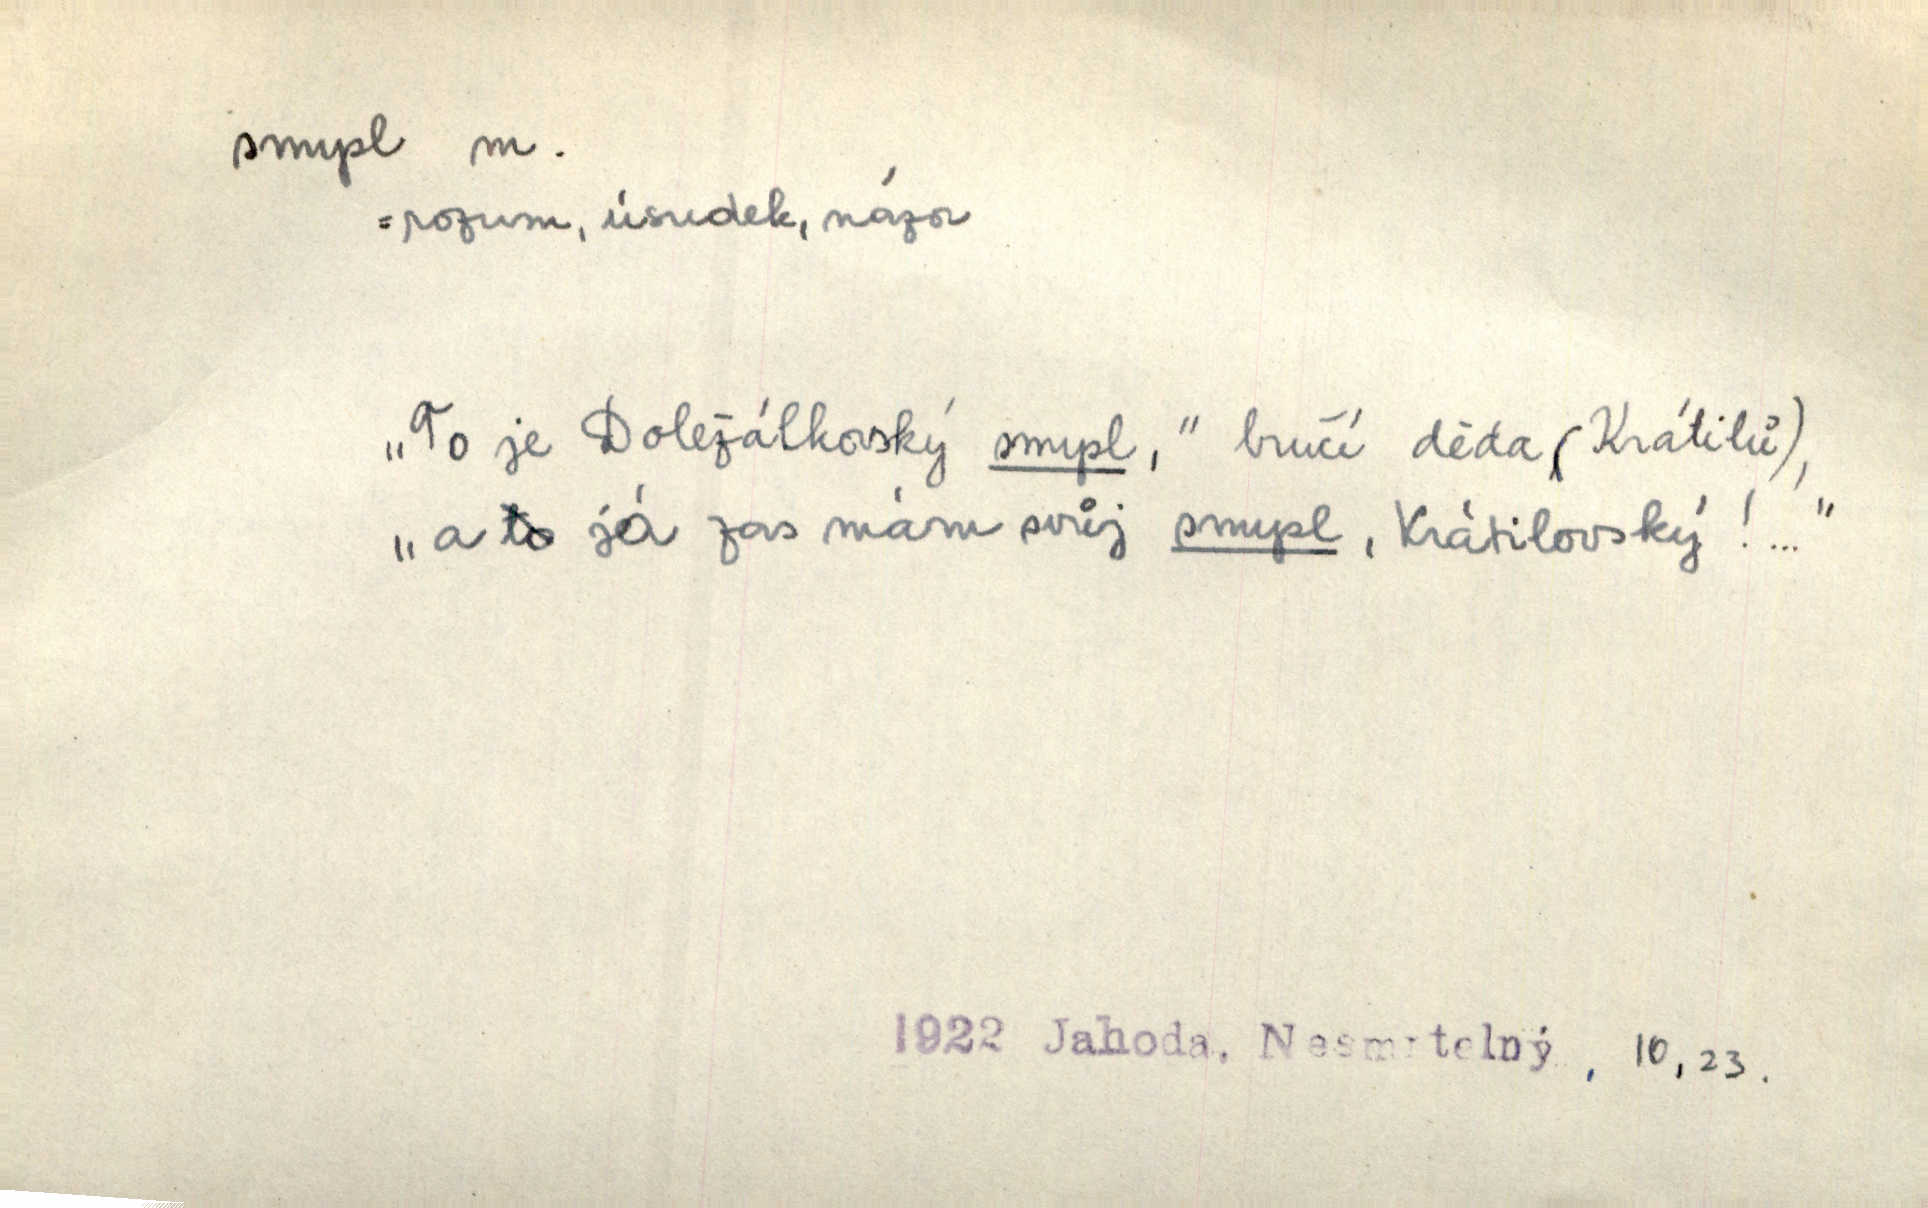 smysl m.
= rozum, úsudek, názor
„To je Doležálkovský smysl," bručí děda (Krátilů),
„a to já zas mám svůj smysl, Krátilovský!..."
1922 Jahoda. Nesmrtelný, 10, 23.